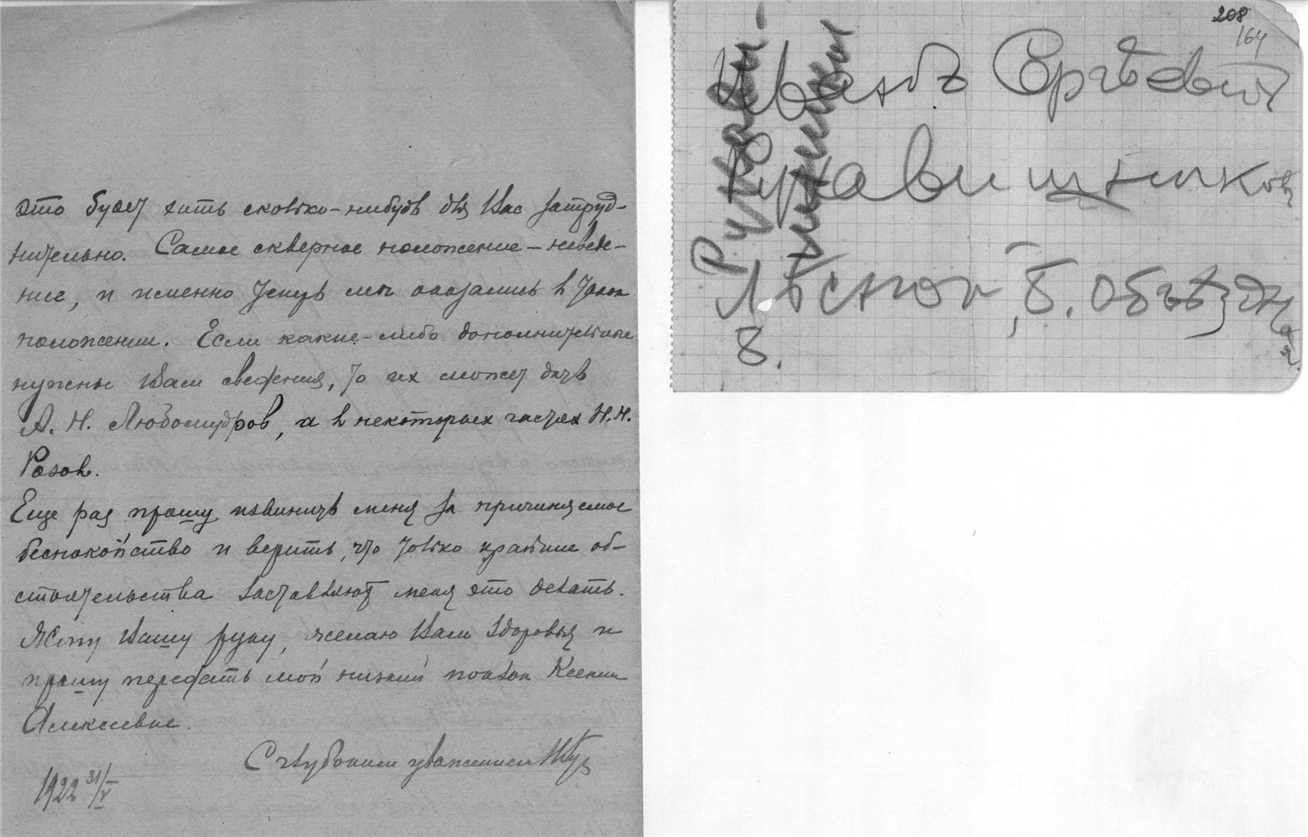 это будет хоть сколько-нибудь для Вас затруд-
нительно. Самое скверное положение – неведе-
ние, и именно теперь мы оказались в таком
положении. Если какие-либо дополнительные
нужны Вам сведения, то их может дать
А. Н. Любомудров, а в некоторых частях Н. Н.
Розов.
Еще раз прошу извинить меня за причиняемое
беспокойство и верить, что только крайние об-
стоятельства заставляют меня это делать.
Жму Вашу руку, желаю Вам здоровья и
прошу передать мой низкий поклон Ксении
Алексеевне.
С глубоким уважением
1922 31/V
208
164
Иванъ Сергѣевичъ
Рукавишников
Лѣсной, Б. Объѣздная
8.
Рукави-
шников